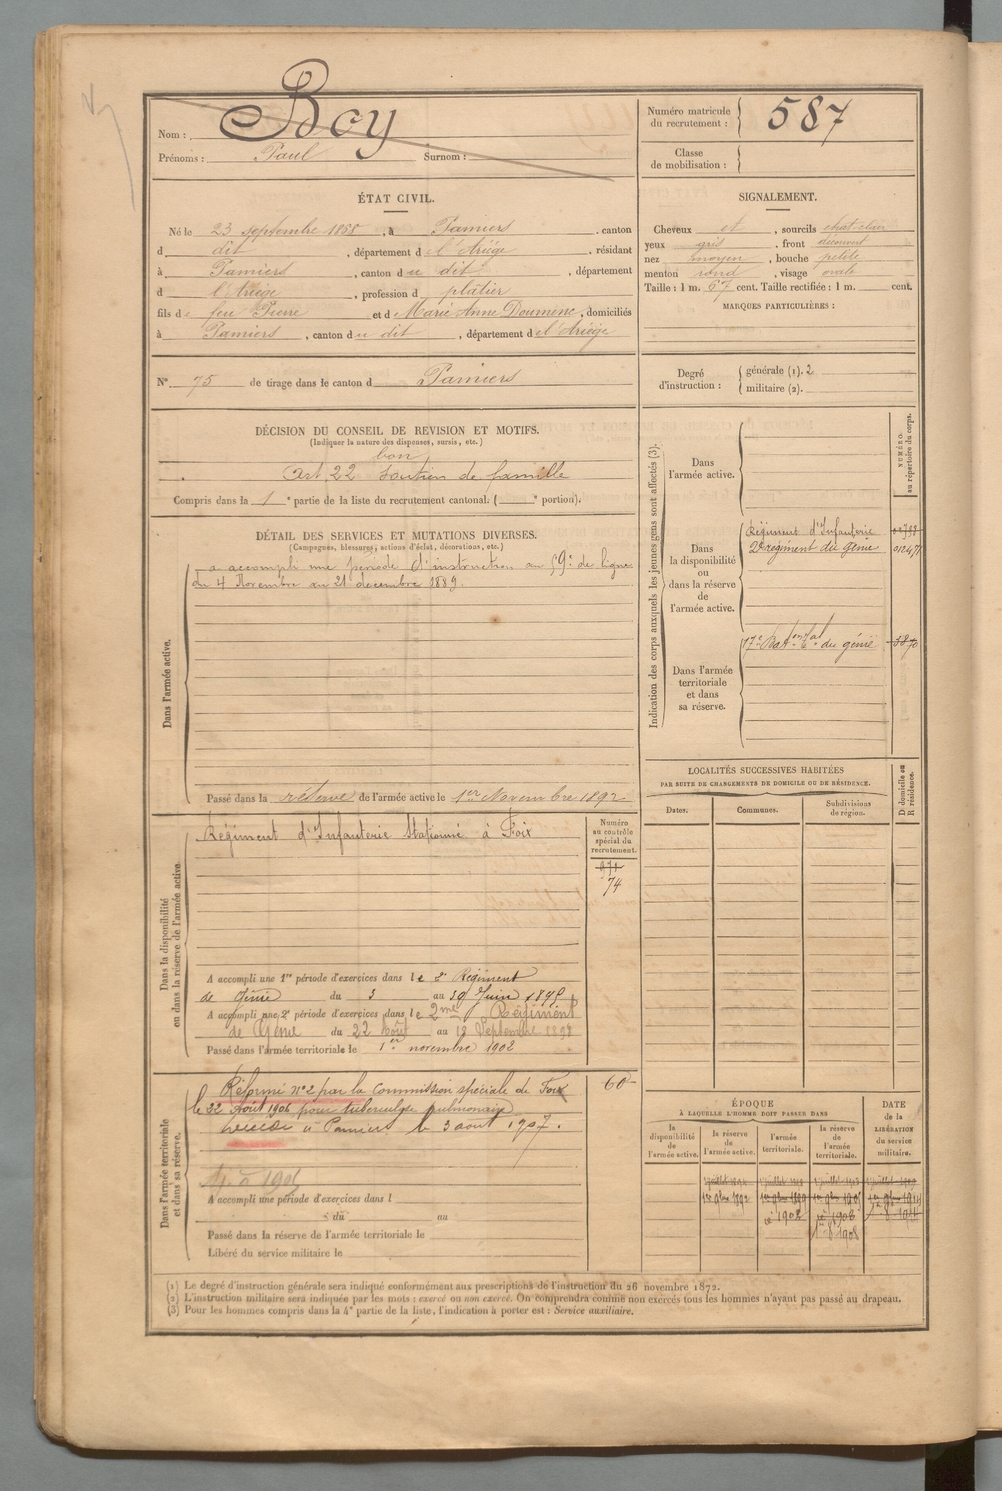 Nom : Boy
Prénoms : Paul Surnom :
Numéro matricule du recrutement : 587
Classe de mobilisation :
ÉTAT CIVIL.
Né le 23 septembre 1868, à Pamiers, canton
d dit, département de l'Ariège, résidant
à Pamiers, canton du dit, département
d l'Ariège, profession d plâtier
fils de feu Pierre et de Marie Anne Doumenc, domiciliés
à Pamiers, canton du dit, département de l'Ariège
SIGNALEMENT.
Cheveux et, sourcils chat-clair
yeux gris, front découvert
nez moyen, bouche petite
menton rond, visage ovale
Taille : 1 m. 67 cent. Taille rectifiée : 1 m. cent.
MARQUES PARTICULIÈRES :
N° 75 de tirage dans le canton d Pamiers
Degré d'instruction : générale (1). 2
militaire (2).
DÉCISION DU CONSEIL DE REVISION ET MOTIFS.
(Indiquer la nature des dispenses, sursis, etc.)
bon
Art. 22 Soutien de famille
Compris dans la 1e partie de la liste du recrutement cantonal. ( e portion).
DÉTAIL DES SERVICES ET MUTATIONS DIVERSES.
(Campagnes, blessures, actions d'éclat, décorations, etc.)
Dans l'armée active.
a accompli une période d'instruction au 59e de ligne
du 4 Novembre au 21 décembre 1889.
Passé dans la réserve de l'armée active le 1er Novembre 1892
Indication des corps auxquels les jeunes gens sont affectés (3).
NUMÉRO au répertoire du corps.
Dans l'armée active.
Dans la disponibilité ou dans la réserve de l'armée active.
Régiment d'Infanterie
2e régiment du génie
Dans l'armée territoriale et dans sa réserve.
17e Baton Tal du génie 3870
LOCALITÉS SUCCESSIVES HABITÉES
PAR SUITE DE CHANGEMENTS DE DOMICILE OU DE RÉSIDENCE.
Dates. Communes. Subdivisions de région. D domicile ou R résidence.
Dans la disponibilité ou dans la réserve de l'armée active.
Régiment d'Infanterie Stationné à Foix
Numéro au contrôle spécial du recrutement.
971
74
A accompli une 1re période d'exercices dans le 2e Régiment
de Génie du 3 au 29 Juin 1895
A accompli une 2e période d'exercices dans le 2me Régiment
de Génie du 22 Août au 18 Septembre 1898
Passé dans l'armée territoriale le 1er novembre 1902
Dans l'armée territoriale et dans sa réserve.
Réformé n°2 par la Commission spéciale de Foix
le 22 Août 1906 pour tuberculose pulmonaire
Décédé à Pamiers le 3 août 1907.
60
A accompli une période d'exercices dans l
du au
Passé dans la réserve de l'armée territoriale le
Libéré du service militaire le
ÉPOQUE
À LAQUELLE L'HOMME DOIT PASSER DANS
la disponibilité de l'armée active. la réserve de l'armée active. l'armée territoriale. la réserve de l'armée territoriale.
DATE de la LIBÉRATION du service militaire.
1er 9bre 1892
(1) Le degré d'instruction générale sera indiqué conformément aux prescriptions de l'instruction du 26 novembre 1872.
(2) L'instruction militaire sera indiquée par les mots : exercé ou non exercé. On comprendra comme non exercés tous les hommes n'ayant pas passé au drapeau.
(3) Pour les hommes compris dans la 4e partie de la liste, l'indication à porter est : Service auxiliaire.